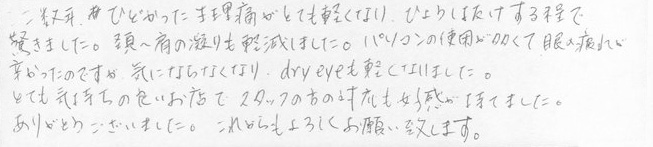 ここ数年、ひどかった生理痛がとても軽くなり、ひょうしぬけする程で
驚きました。頚〜肩の凝りも軽減しました。パソコンの使用が多くて眼の疲れが
辛かったのですが、気にならなくなり、dry eyeも軽くなりました。
とても気持ちの良いお店で、スタッフの方の対応も好感が持てました。
ありがとうございました。これからもよろしくお願い致します。